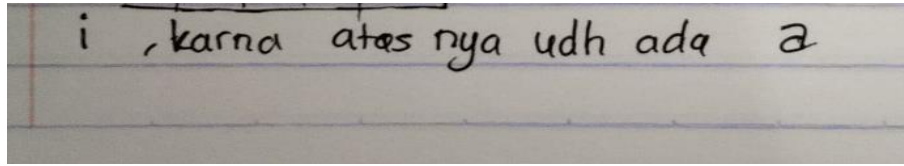 i , karna atas nya udh ada a